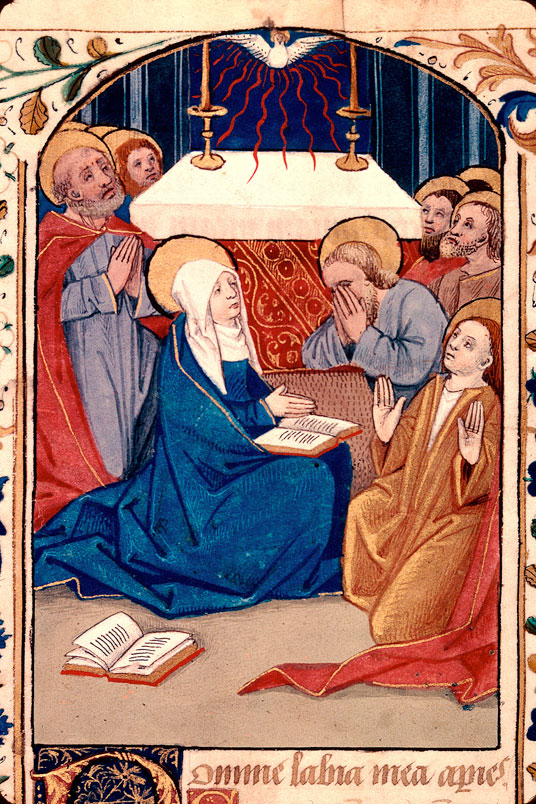 Domine labia mea apies